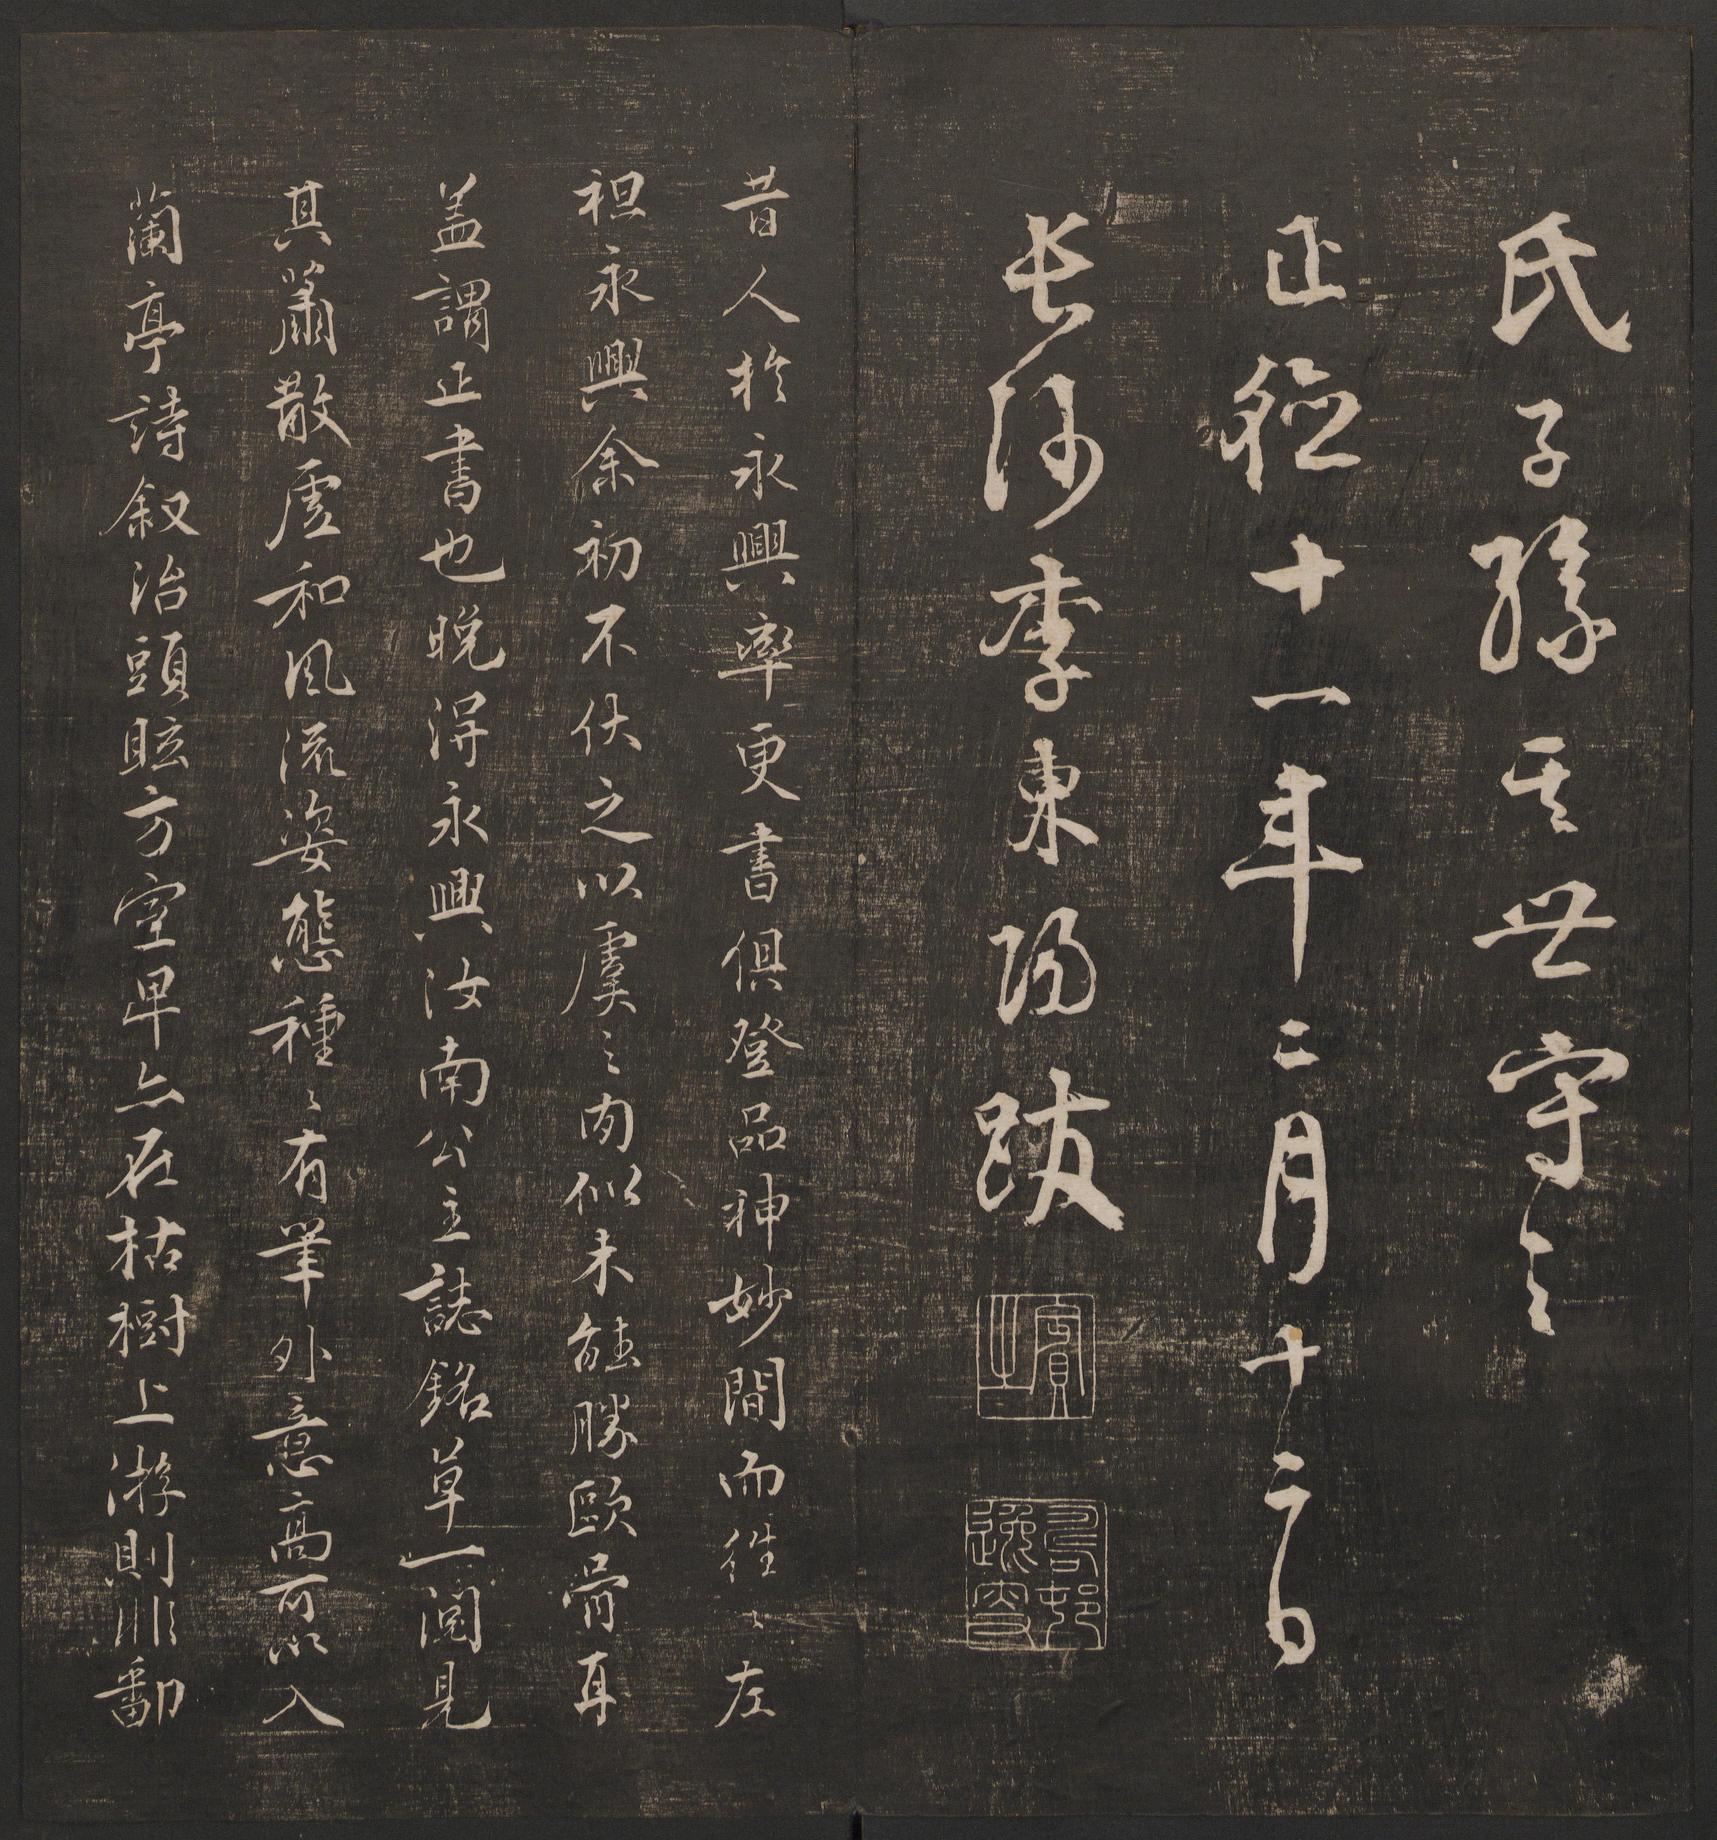 氏子孫其世守之
正德十一年二月十二日
長沙李東陽跋
賓之
昔人於永興率更書俱登品神妙間而往〻左
袒永興余初不伏之以虞〻肉似未能勝歐骨耳
蓋謂正書也晚得永興汝南公主誌銘草一閱見
其蕭散虛和風流姿態種〻有筆外意高可以入
蘭亭詩叙治頭眩方室卑亦在枯樹上游則非鄱